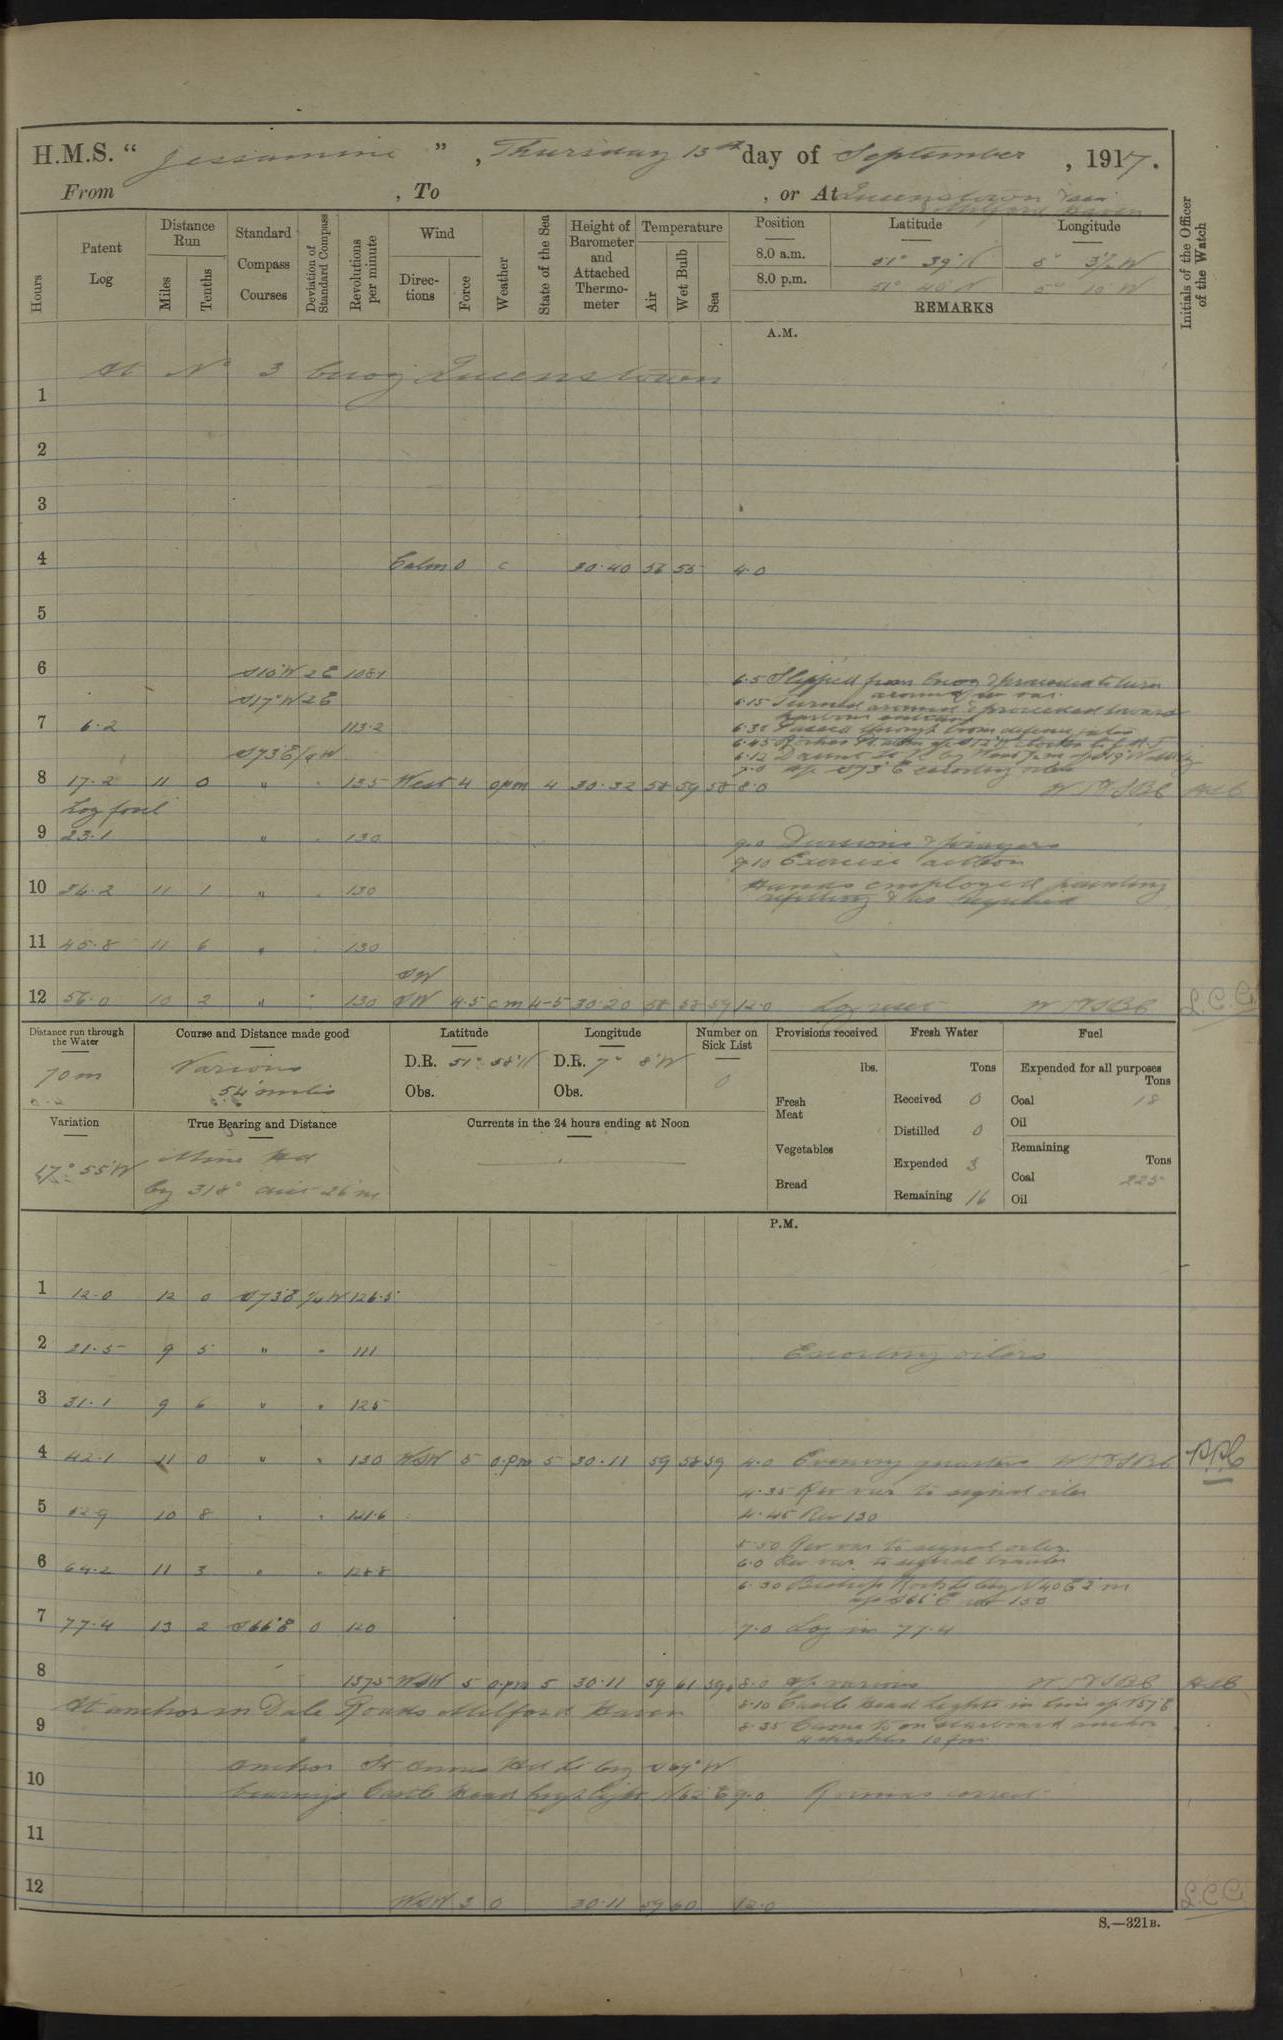 H.M.S. " Jessamine ", Thursday 13th day of September, 1917.
From , To , or At Queenstown & sea
Milford Haven
Hours
Patent Log
Distance Run
Miles
Tenths
Standard Compass Courses
Deviation of Standard Compass
Revolutions per minute
Wind
Directions
Force
Weather
State of the Sea
Height of Barometer and Attached Thermometer
Temperature
Air
Wet Bulb
Sea
Position Latitude Longitude
8.0 a.m. 51° 39' N 8° W
8.0 p.m. 51° 40' N 5° 10' W
REMARKS
Initials of the Officer of the Watch
A.M.
At No 3 buoy Queenstown
1
2
3
4 Calm 0 c 30.40 56 55 4.0
5
6 S10°W 2E 108.1
6.5 Slipped from buoy & proceeded to turn
S17°W 2E
6.15 Turned around & proceeded towards
harbour entrance
7 6.2 113.2
6.35 Passed through boom defence
S73E 1/4W
8 17.2 11 0 " 135 West 4 opm 4 30.32 58 59 58 8.0
Log foul
9 23.1 " 130
9.0 Divisions & prayers
9.10 Exercise action
10 34.2 11 1 " 130
Hands employed painting
refitting & as required
11 45.8 11 6 " 130
SW
12 56.0 10 2 " 130 SW 4.5 cm 4-5 30.20 58 58 59 12.0 Log reset L.C.C.
Distance run through the Water
70 m
Course and Distance made good
Various
54 miles
Latitude
D.R. 51° 38' N
Obs.
Longitude
D.R. 7° 8' W
Obs.
Number on Sick List
0
Provisions received
lbs.
Fresh Meat
Vegetables
Bread
Fresh Water
Tons
Received 0
Distilled 0
Expended 3
Remaining 16
Fuel
Expended for all purposes
Tons
Coal 18
Oil
Remaining
Tons
Coal 225
Oil
Variation
17° 55' W
True Bearing and Distance
Mine Hd
by 318° dist 26 m
Currents in the 24 hours ending at Noon
P.M.
1 12.0 12 0 S73E 1/4 W 126.5
2 21.5 9 5 " " 111 Escorting oilers
3 31.1 9 6 " " 125
4 42.1 11 0 " " 130 WSW 5 o.pm 5 30.11 59 58 59 4.0 Evening quarters
4.35 Rev var to signal oiler
5 52.9 10 8 " " 121.6 4.45 Rev 130
5.50 Rev var to signal oiler
6 64.2 11 3 " " 128.8 6.0 Rev var to signal trawler
6.30 Bishop Rock Lt by N40E 2'm
a/c S66°E rev 150
7 77.4 13 2 S66°E 0 120 7.0 Log in 77.4
8 137.5 WSW 5 o.pm 5 30.11 59 61 59 8.0 a/c various
At anchor in Dale Roads Milford Haven
8.10 Castle Head Lights in line
9 8.35 Came to on starboard anchor
4 shackles 10 fms
anchor St Annes Hd Lt by S69°W
10 bearings Castle Head high light N62°E 9.0 Rounds correct
11
12 WSW 3 0 30.11 59 60 12.0 L.C.C.
S.—321B.